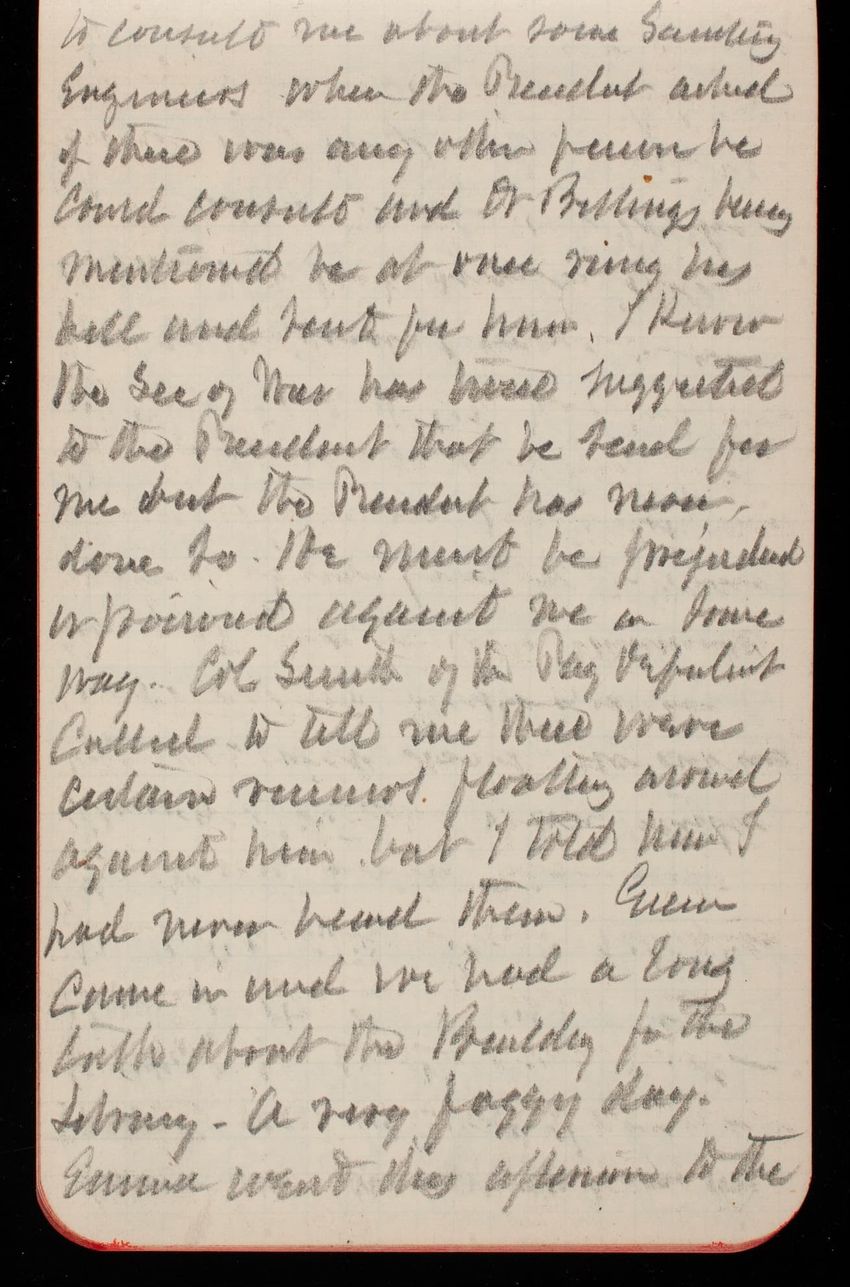 to consult me about some Sanitary
Engineers when the President asked
if there was any other person he
could consult and Dr Billings being
mentioned he at once rung his
bell and sent for him. I Know
the Sec of War has twice suggested
to the President that he send for
me but the President has never
done so. He must be prejudiced
or poisoned against me in some
way. Col Smith of the Pay Department
Called to tell me there were
certain rumors floating around
against him but I told him I
had never heard them. Green
Came in and we had a long
talk about the Building for the
Library - A very foggy day.
Emma went this afternoon to the